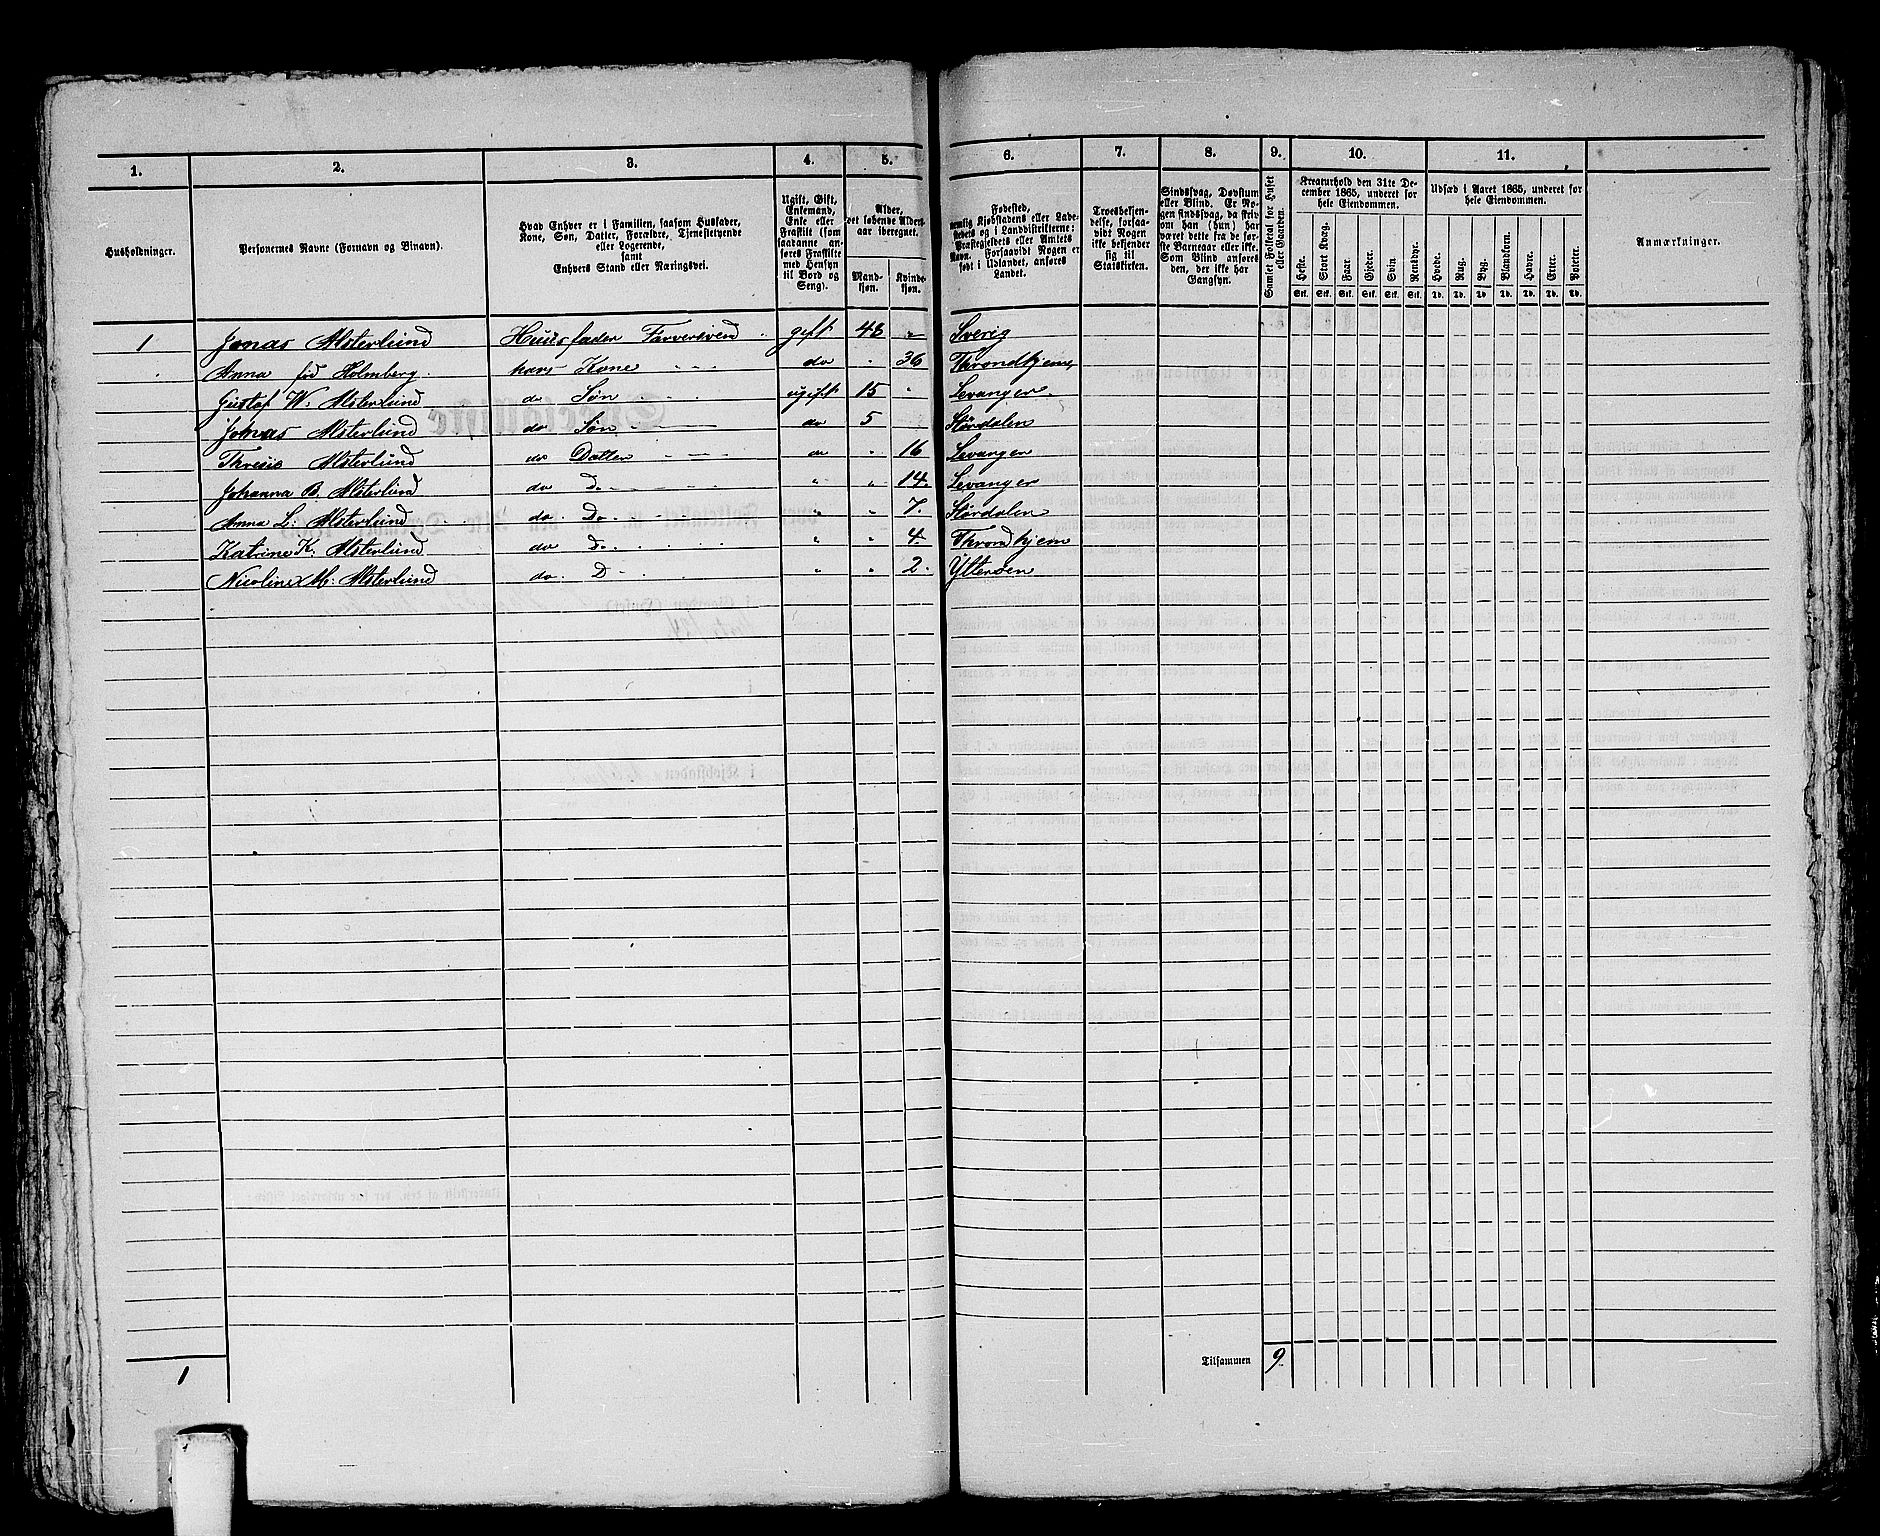 1. 2. 3. 4. 5. 6. 7. 8. 9. 10. 11.
Husholdninger.
Personernes Navne (Fornavn og Binavn).
Hvad Enhver er i Familien, saasom Husfader,
Kone, Søn, Datter, Forældre, Tjenestetyende
eller Logerende,
samt
Enhvers Stand eller Næringsvei.
Ugift, Gift,
Enkemand,
Enke eller
Fraskilt (som
saadanne an-
føres Fraskilte
med Hensyn
til Bord og
Seng).
Alder,
det løbende Alders-
aar iberegnet.
Mand-
kjøn.
Kvinde-
kjøn.
Fødested,
nemlig Kjøbstadens eller Lade-
stedets og i Landdistrikterne:
Præstegjeldets eller Amtets
Navn. Forsaavidt Nogen er
født i Udlandet, anføres
Landet.
Troesbekjen-
delse, forsaa-
vidt Nogen
ikke bekjender
sig til
Statskirken.
Sindssvag, Døvstum
eller Blind. Er No-
gen sindssvag, da skriv
om han (hun) har
været dette fra de før-
ste Barneaar eller ikke.
Som Blind anføres
den, der ikke har
Gangsyn.
Samlet Folketal for Huset
eller Gaarden.
Kreaturhold den 31te De-
cember 1865, underet for
hele Eiendommen.
Heste. Stort Kvæg. Faar. Gjeder. Svin. Rensdyr.
Stk. Stk. Stk. Stk. Stk. Stk.
Udsæd i Aaret 1865, underet for
hele Eiendommen.
Hvede. Rug. Byg. Blandkorn. Havre. Erter. Poteter.
Td. Td. Td. Td. Td. Td. Td.
Anmærkninger.
1 Jonas Alsterlund Huusfader Farversvend gift 48 " Sverig
Anna fød Holmberg. hans Kone do " 36 Throndhjem
Gustaf W. Alsterlund do Søn ugift 15 " Levanger
Jonas Alsterlund do Søn do 5 Størdalen
Thresie Alsterlund do Datter do " 16 Levanger
Johanna B. Alsterlund do D. " " 14. Levanger
Anna L. Alsterlund do. Do. " " 7. Størdalen
Katrine K. Alsterlund do D. " " 4. Throndhjem
Nicoline M. Alsterlund do. D " " 2. Ytterøen
Tilsammen 9.
1